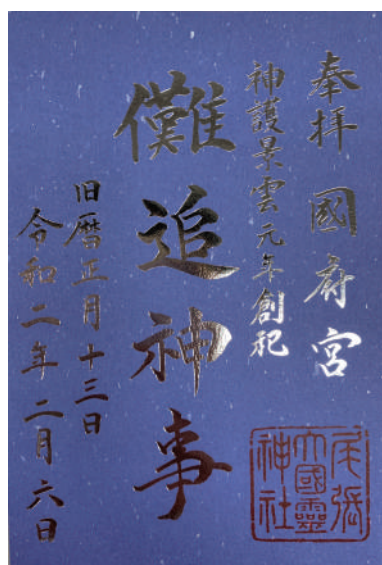 奉拝 國府宮
神護景雲元年創祀
儺追神事
旧暦正月十三日
令和二年二月六日
尾張
大國靈
神社